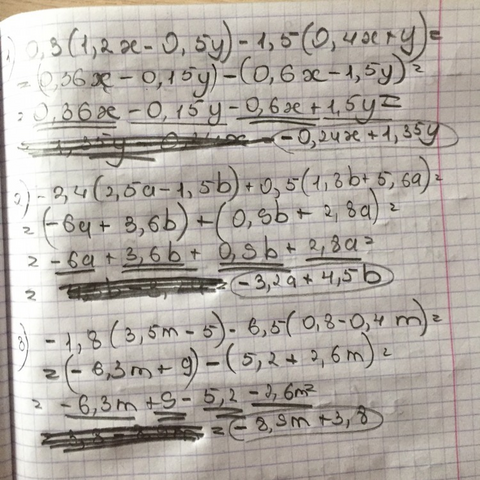 1) 0,3(1,2x - 0,5y) - 1,5(0,4x+y)=
= (0,36x - 0,15y) - (0,6x - 1,5y)=
= 0,36x - 0,15y - 0,6x + 1,5y=
= -0,24x + 1,35y
2) -2,4(2,5a - 1,5b) + 0,5(1,8b + 5,6a)=
= (-6a + 3,6b) + (0,9b + 2,8a)=
= -6a + 3,6b + 0,9b + 2,8a=
= = -3,2a + 4,5b
3) -1,8(3,5m - 5) - 6,5(0,8 - 0,4m)=
= (-6,3m + 9) - (5,2 + 2,6m)=
= -6,3m + 9 - 5,2 - 2,6m=
= -8,9m + 3,8